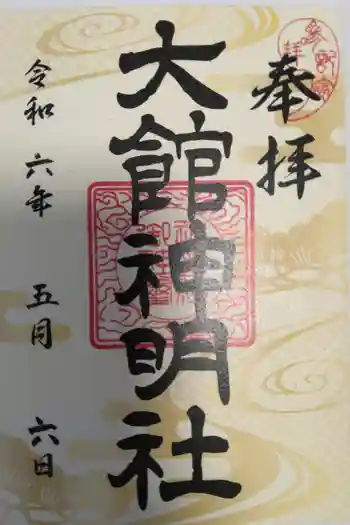 奉拝
大館神明社
令和六年 五月 六日